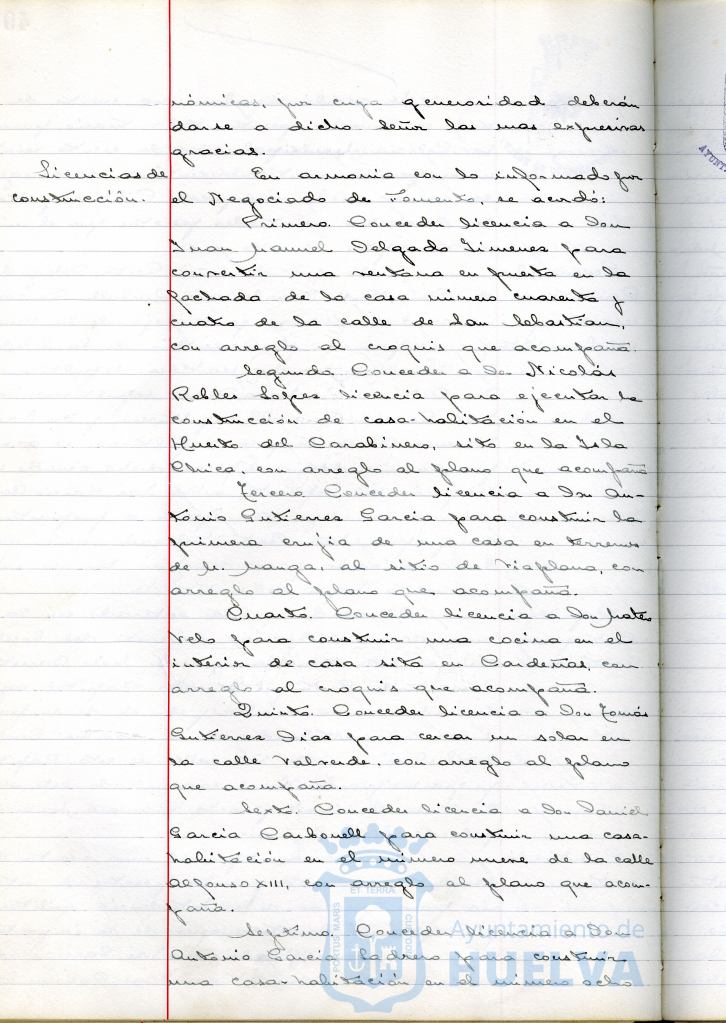 nómicas, por cuya generosidad deberán
darse a dicho Señor las mas expresivas
gracias.
Licencias de
construcción.
En armonia con lo informado por
el Negociado de Fomento, se acordó:
Primero. Conceder licencia a Don
Juan Manuel Delgado Jimenes para
convertir una ventana en puerta en la
fachada de la casa número cuarenta y
cuatro de la calle de San Sebastian,
con arreglo al croquis que acompaña.
Segundo. Conceder a Don Nicolás
Robles Lopes licencia para ejecutar la
construcción de casa-habitación en el
Huerto del Carabinero, sito en la Isla
Chica, con arreglo al plano que acompaña
Tercero. Conceder licencia a Don An-
tonio Gutierres Garcia para construir la
primera crujia de una casa en terrenos
de M. Manga, al sitio de Viaplana, con
arreglo al plano que acompaña.
Cuarto. Conceder licencia a Don Mateo
Velo para construir una cocina en el
interior de casa sita en Cardeñas, con
arreglo al croquis que acompaña.
Quinto. Conceder licencia a Don Tomás
Gutierres Dias para cercar un solar en
la calle Valverde, con arreglo al plano
que acompaña.
Sexto. Conceder licencia a Don Daniel
Garcia Carbonell para construir una casa-
habitación en el número nueve de la calle
Alfonso XIII, con arreglo al plano que acom-
paña.
Septimo. Conceder licencia a Don
Antonio Garcia Ladrero para construir
una casa-habitación en el número ocho
PORTUS MARIS
ET TERRÆ
CUSTODIA
Ayuntamiento de
HUELVA